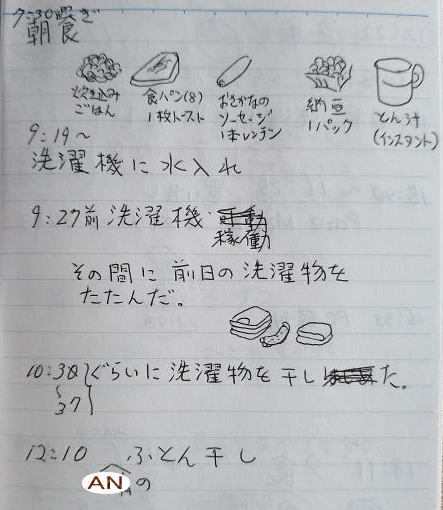 7:30過ぎ
朝食
炊き込み
ごはん
食パン(8)
1枚トースト
おさかなの
ソーセージ
1本レンチン
納豆
1パック
とん汁
(インスタント)
9:19~
洗濯機に水入れ
9:27前 洗濯機
稼働
その間に前日の洗濯物を
たたんだ。
10:30ぐらいに洗濯物を干した。
37
12:10 ふとん干し
AN の